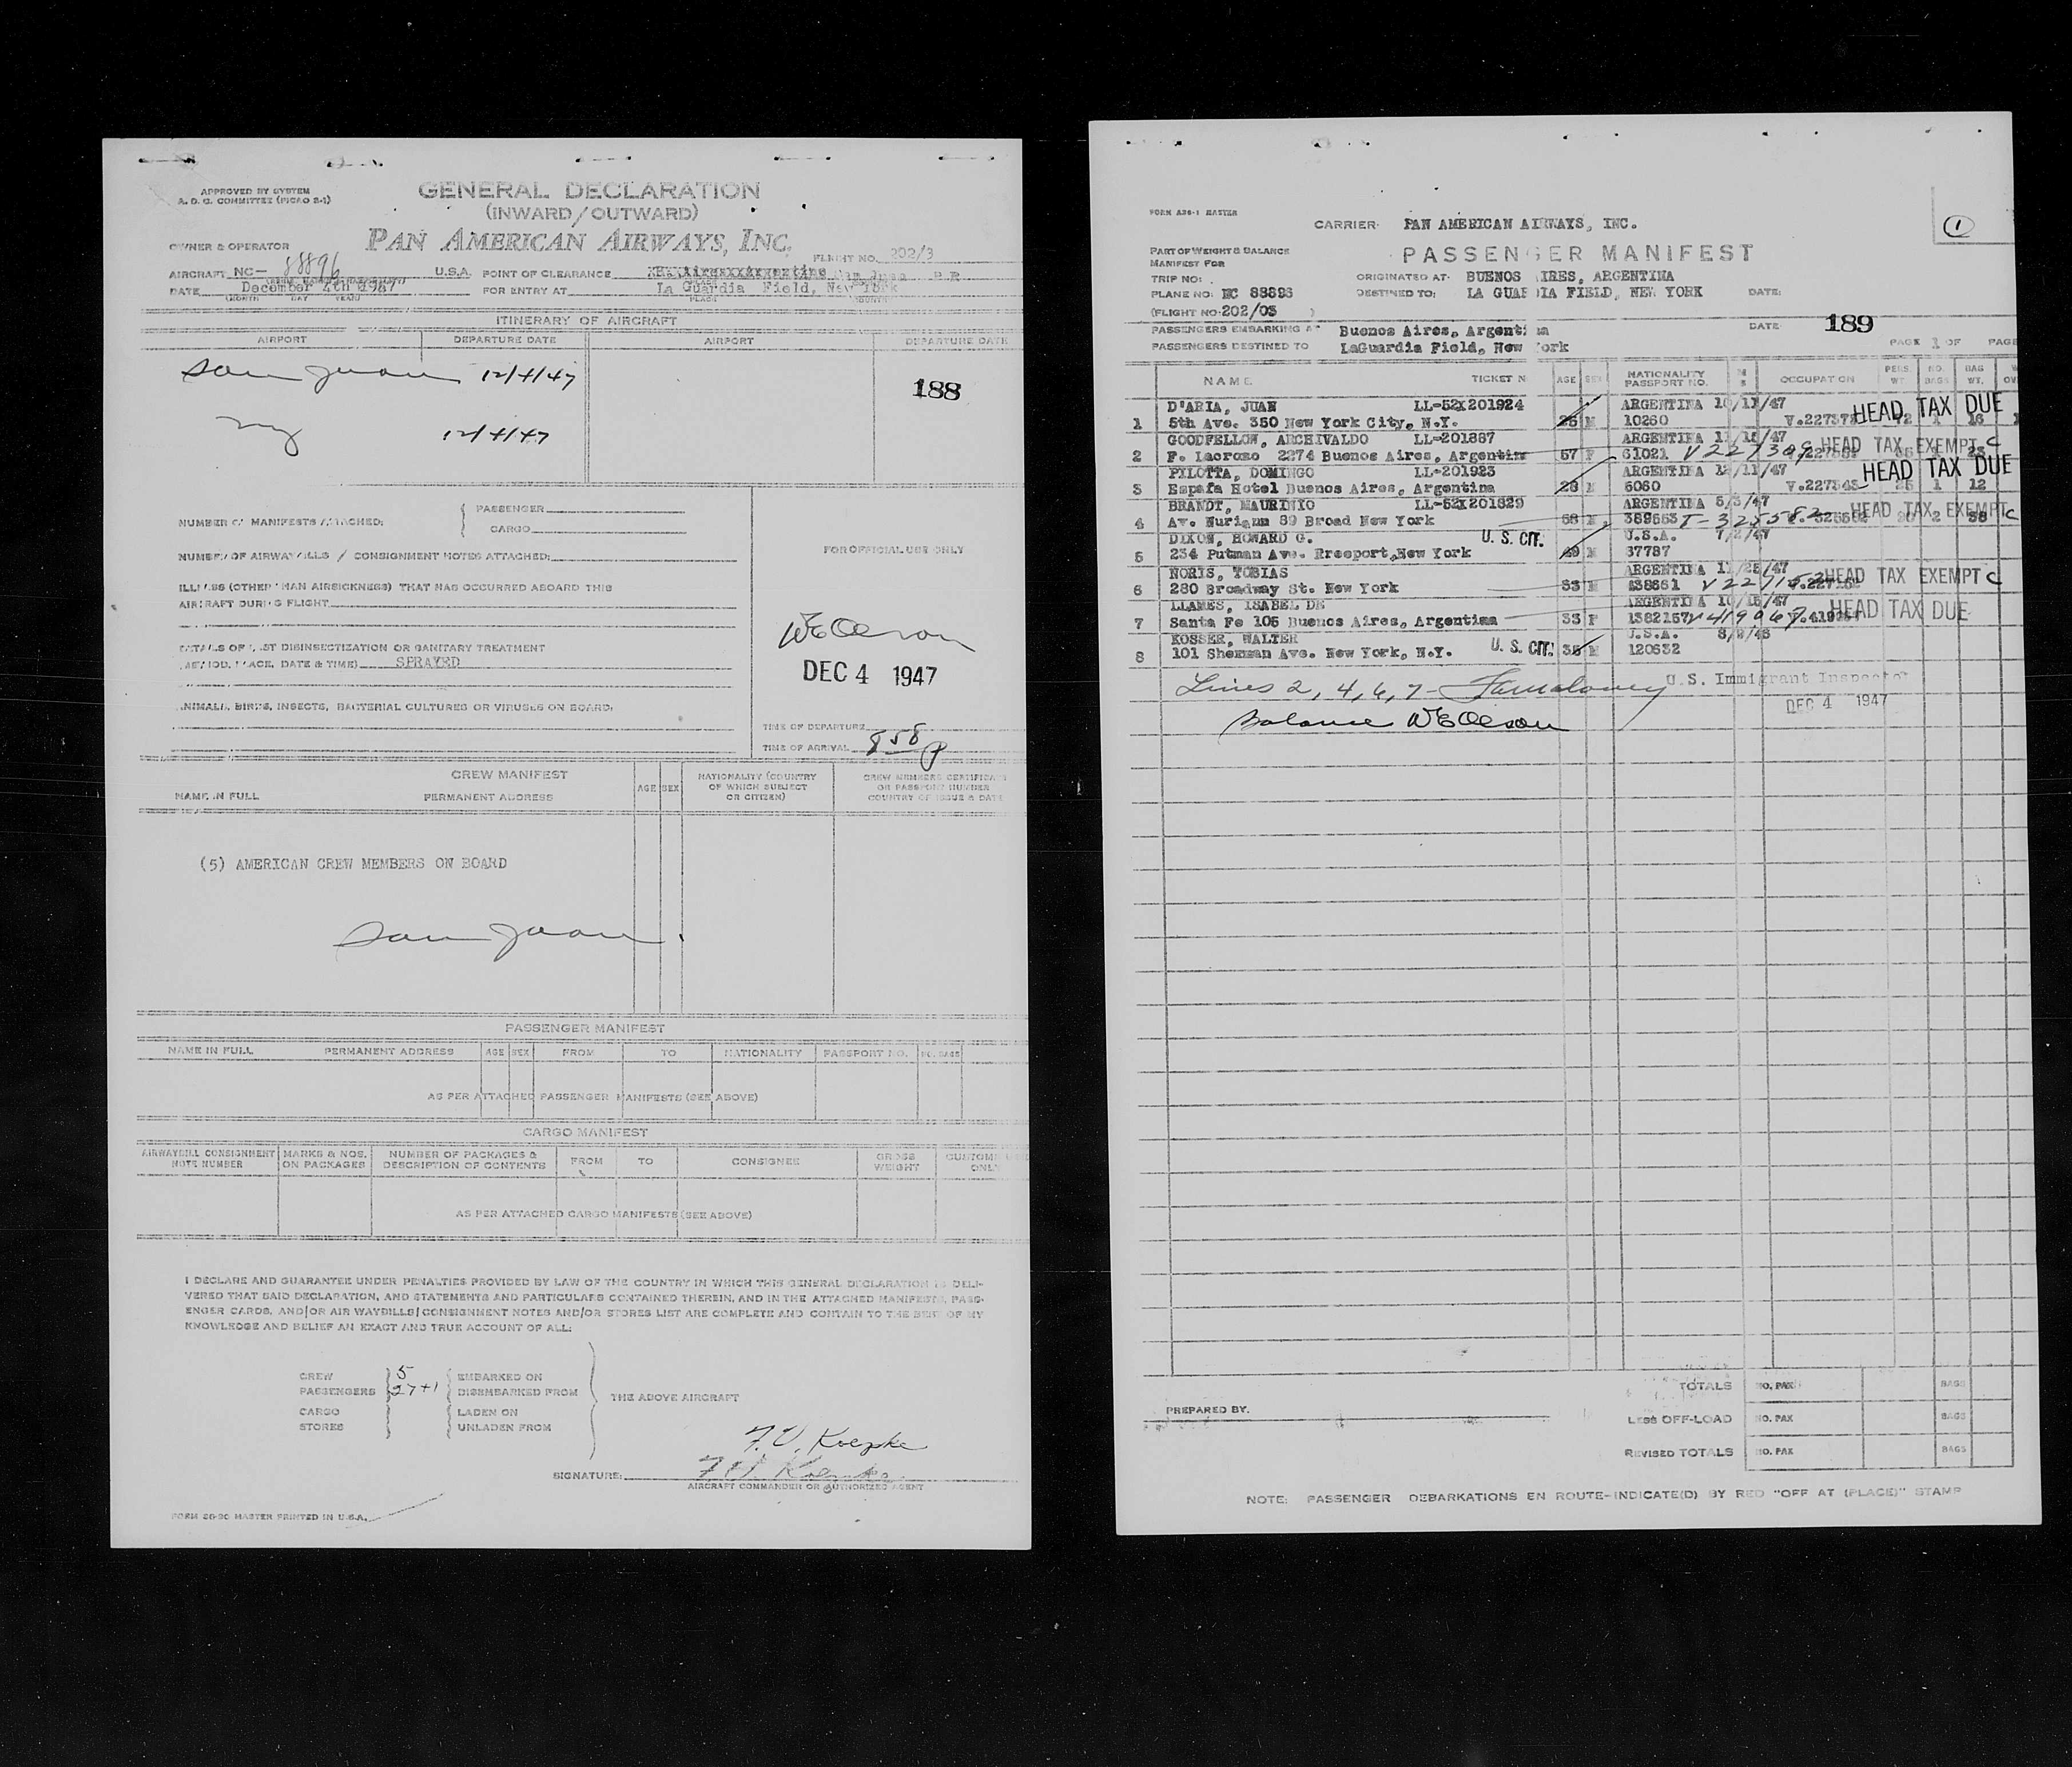 APPROVED BY SYSTEM
A. D. C. COMMITTEE (PICAO 2-1)
GENERAL DECLARATION
(INWARD/OUTWARD)
PAN AMERICAN AIRWAYS, INC.
OWNER & OPERATOR
FLIGHT NO. 202/3
AIRCRAFT NC- 88896 U.S.A. POINT OF CLEARANCE San Juan P R
DATE December 4th FOR ENTRY AT La Guardia Field, New York
(MONTH DAY YEAR) PLACE
ITINERARY OF AIRCRAFT
AIRPORT DEPARTURE DATE AIRPORT DEPARTURE DATE
San Juan 12/4/47
188
NY 12/4/47
NUMBER OF MANIFESTS ATTACHED: PASSENGER
CARGO
FOR OFFICIAL USE ONLY
NUMBER OF AIRWAYBILLS / CONSIGNMENT NOTES ATTACHED:
ILLNESS (OTHER THAN AIRSICKNESS) THAT HAS OCCURRED ABOARD THIS
AIRCRAFT DURING FLIGHT
WE Oleson
DETAILS OF LAST DISINSECTIZATION OR SANITARY TREATMENT
(METHOD, PLACE, DATE & TIME) SPRAYED
DEC 4 1947
ANIMALS, BIRDS, INSECTS, BACTERIAL CULTURES OR VIRUSES ON BOARD:
TIME OF DEPARTURE
TIME OF ARRIVAL 858 P
CREW MANIFEST
NAME IN FULL PERMANENT ADDRESS AGE SEX NATIONALITY (COUNTRY OF WHICH SUBJECT OR CITIZEN) CREW MEMBERS CERTIFICATE OR PASSPORT NUMBER COUNTRY OF ISSUE & DATE
(5) AMERICAN CREW MEMBERS ON BOARD
San Juan
PASSENGER MANIFEST
NAME IN FULL PERMANENT ADDRESS AGE SEX FROM TO NATIONALITY PASSPORT NO. NO. BAGS
AS PER ATTACHED PASSENGER MANIFESTS (SEE ABOVE)
CARGO MANIFEST
AIRWAYBILL CONSIGNMENT NOTE NUMBER MARKS & NOS. ON PACKAGES NUMBER OF PACKAGES & DESCRIPTION OF CONTENTS FROM TO CONSIGNEE GROSS WEIGHT CUSTOMS USE ONLY
AS PER ATTACHED CARGO MANIFESTS (SEE ABOVE)
I DECLARE AND GUARANTEE UNDER PENALTIES PROVIDED BY LAW OF THE COUNTRY IN WHICH THIS GENERAL DECLARATION IS DELI-
VERED THAT SAID DECLARATION, AND STATEMENTS AND PARTICULARS CONTAINED THEREIN, AND IN THE ATTACHED MANIFESTS, PASS-
ENGER CARDS, AND/OR AIR WAYBILLS/CONSIGNMENT NOTES AND/OR STORES LIST ARE COMPLETE AND CONTAIN TO THE BEST OF MY
KNOWLEDGE AND BELIEF AN EXACT AND TRUE ACCOUNT OF ALL:
CREW 5 EMBARKED ON
PASSENGERS 27+1 DISEMBARKED FROM THE ABOVE AIRCRAFT
CARGO LADEN ON
STORES UNLADEN FROM
F.V. Koepke
SIGNATURE: F.V. Koepke
AIRCRAFT COMMANDER OR AUTHORIZED AGENT
FORM 26-30 MASTER PRINTED IN U.S.A.
FORM A26-1 MASTER
CARRIER: PAN AMERICAN AIRWAYS, INC. 1
PART OF WEIGHT & BALANCE
MANIFEST FOR
PASSENGER MANIFEST
TRIP NO: ORIGINATED AT: BUENOS AIRES, ARGENTINA
PLANE NO: NC 88896 DESTINED TO: LA GUARDIA FIELD, NEW YORK DATE:
(FLIGHT NO. 202/03 )
PASSENGERS EMBARKING AT Buenos Aires, Argentina DATE 189
PASSENGERS DESTINED TO LaGuardia Field, New York PAGE 1 OF PAGE
NAME TICKET N AGE SEX NATIONALITY PASSPORT NO. M S OCCUPATION PERS. WT. NO. BAGS BAG WT.
D'ARIA, JUAN LL-52X201924 ARGENTINA 10/11/47 HEAD TAX DUE
1 5th Ave. 350 New York City, N.Y. 25 M 10260 V.227373 72 1 16
GOODFELLOW, ARCHIVALDO LL-201887 ARGENTINA HEAD TAX EXEMPT C
2 F. Lacrozo 2274 Buenos Aires, Argentina 57 F 61021 23
PILOTTA, DOMINGO LL-201923 ARGENTINA 12/11/47 HEAD TAX DUE
3 España Hotel Buenos Aires, Argentina 28 M 6060 V.227343 1 12
BRANDT, MAURINIO LL-52X201829 ARGENTINA 5/3/47 HEAD TAX EXEMPT C
4 Av. Nuriann 89 Broad New York 58 M 389553 T-325582 2 38
DIXON, HOWARD G. U. S. CIT. U.S.A. 7/2/47
5 234 Putman Ave. Rreeport,New York 49 M 37787
NORIS, TOBIAS ARGENTINA 11/25/47 HEAD TAX EXEMPT C
6 280 Broadway St. New York 33 M
LLAMES, ISABEL DE ARGENTINA 10/15/47 HEAD TAX DUE
7 Santa Fe 105 Buenos Aires, Argentina 33 F 1382157 V419967
KOSSER, WALTER U. S. CIT. U.S.A. 8/9/46
8 101 Sherman Ave. New York, N.Y. 35 M 120632
Lines 2, 4, 6, 7 - U.S. Immigrant Inspector
DEC 4 1947
Balance WE Oleson
TOTALS NO. PAX BAGS
PREPARED BY.
LESS OFF-LOAD NO. PAX BAGS
REVISED TOTALS NO. PAX BAGS
NOTE: PASSENGER DEBARKATIONS EN ROUTE-INDICATE(D) BY RED "OFF AT (PLACE)" STAMP